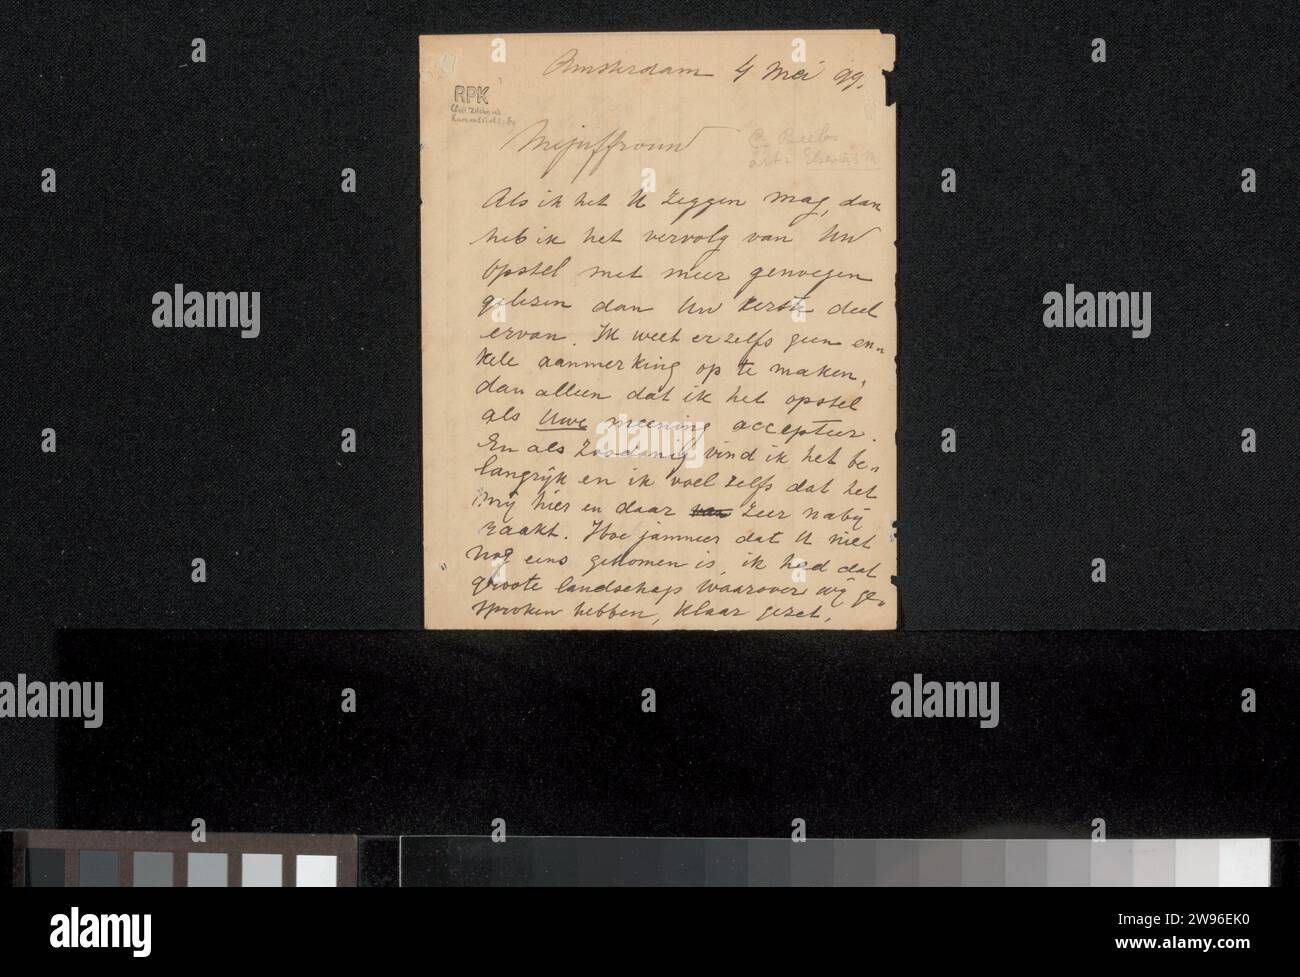 Amsterdam 4 Mei 99.
RPK
Mejuffrouw
Als ik het U zeggen mag, dan
heb ik het vervolg van Uw
opstel met meer genoegen
gelezen dan Uw eerste deel
ervan. Ik weet er zelfs geen en-
kele aanmerking op te maken,
dan alleen dat ik het opstel
als Uwe meening accepteer.
En als zoodanig vind ik het be-
langrijk en ik voel zelfs dat het
mij hier en daar zeer nabij
raakt. Hoe jammer dat U niet
nog eens gekomen is, ik had dat
groote landschap waarover wij ge-
sproken hebben, klaar gezet.
alamy
Image ID: 2W96EK0
www.alamy.com